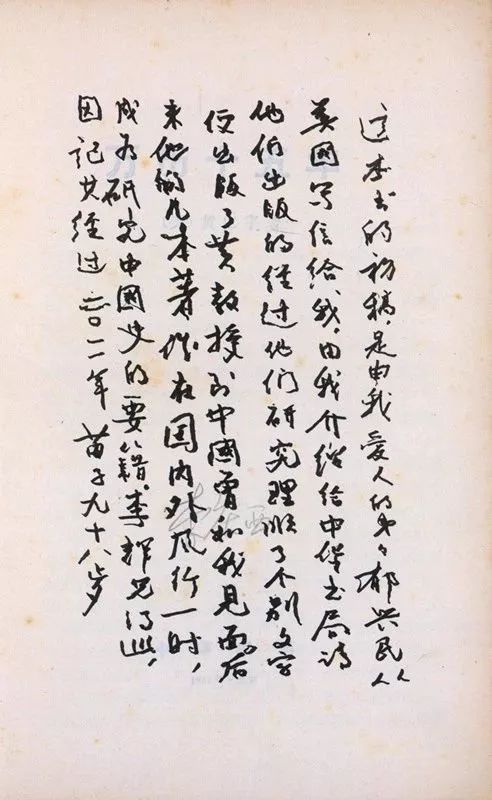 这本书的初稿,是由我爱人的弟弟郁兴民从
美國写信给我,由我介绍给中华书局请
他们出版的经过他们研究理顺了个别文字
便出版了黄教授到中國曾和我见面后
来他的几本著作在国内外风行一时,
成为研究中國史的要籍。李辉兄得此,
因记其经过 二〇一一年 苗子九十八岁